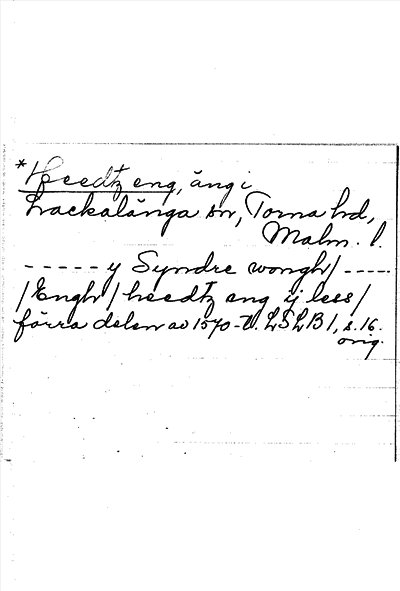 * Heedtz eng, äng i
Lackalänga sn, Torna hd,
Malm. l.
- - - - - y Syndre wongh/ - - - -
/Engh/ heedtz eng ij less/
förra delen av 1570-t. LSLB 1, s. 16.
orig.